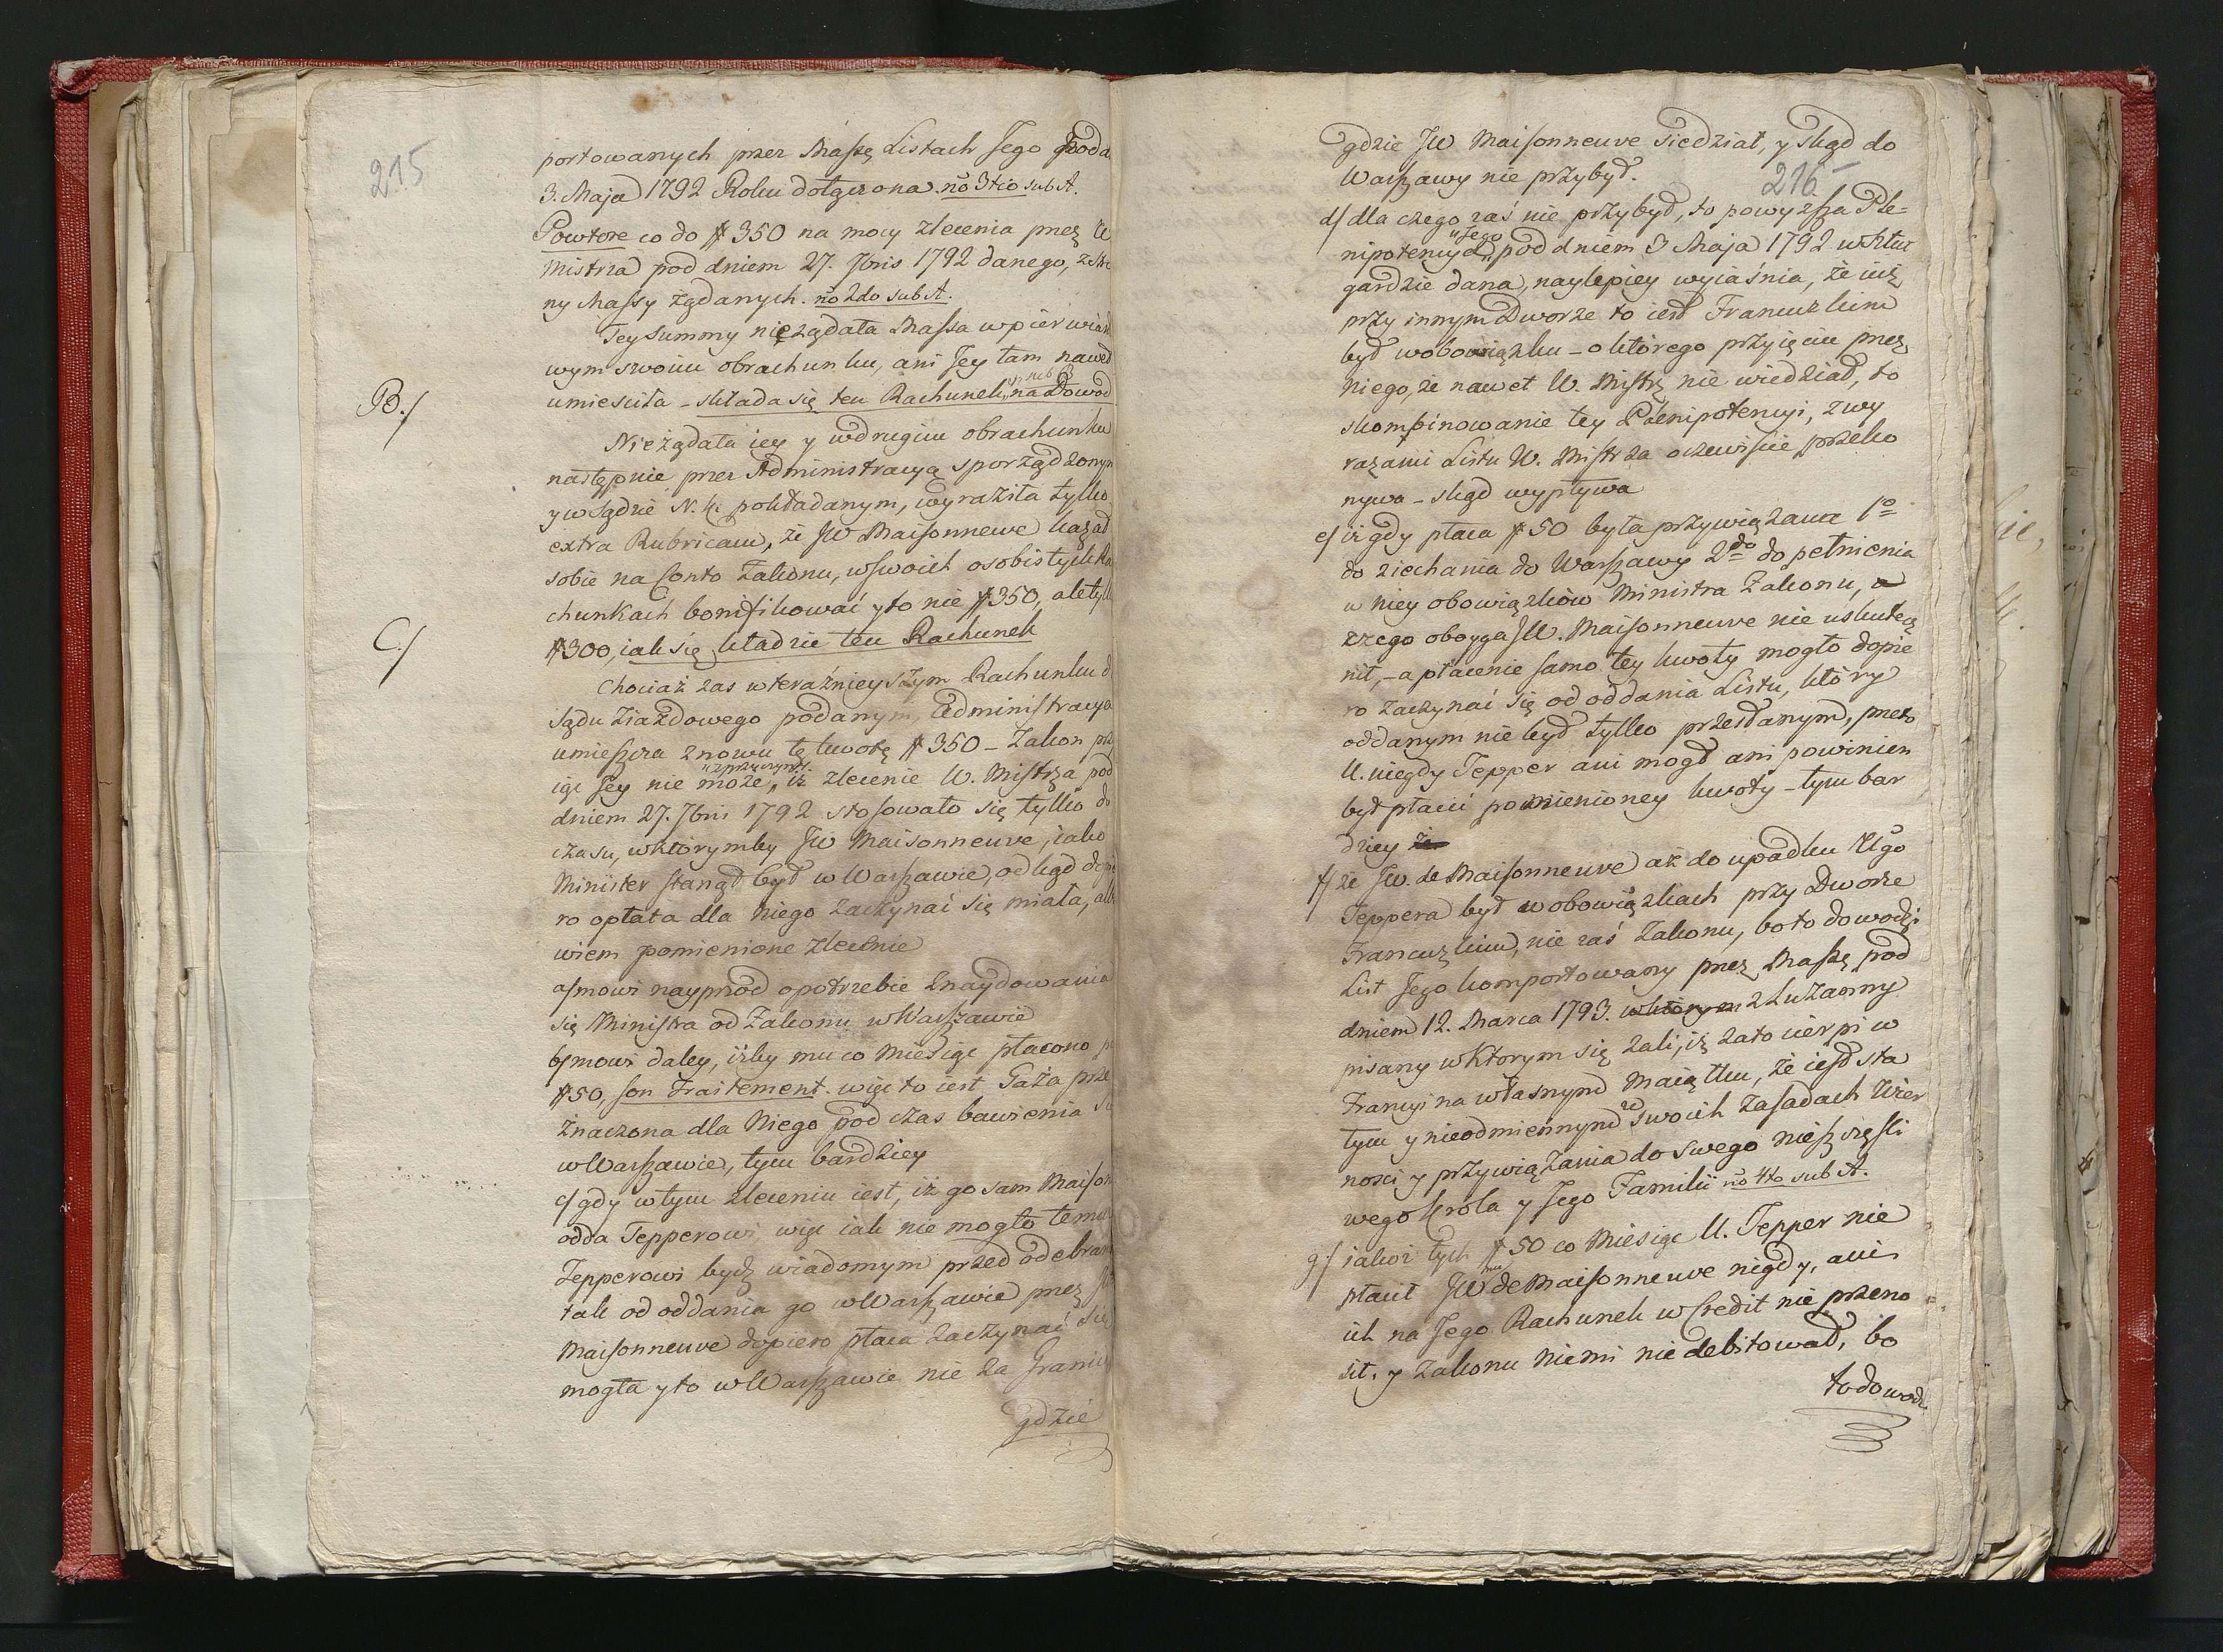 215
portowanych przez Massę Listach Jego pod d.
3. Maja 1792 Roku dołączona no 3tio sub A.
Powtore co do # 350 na mocy zlecenia przez W
Mistrza pod dniem 27. 7bris 1792 danego, ze stro
ny Massy żądanych. no 2do sub A.
Tey Summy nie żądała Massa w pierwiast
wym swoim obrachunku, ani Jey tam nawet
B./
umieściła – składa się ten Rachunek na Dowod
Nieżądała iey y w drugim obrachunku
następnie przez Administracyą sporządzonym
y w Sądzie N. K. pokładanym, wyraziła tylko
extra Rubricam, że JW Maisonneuve kazał
sobie na Conto Zakonu, w swoich osobistych Ra
chunkach bonifikować y to nie # 350, ale tylk
C./
# 300, iak się kładzie ten Rachunek
Chociaż zas w teraźnieyszym Rachunku d
Sądu Ziazdowego podanym, Administracya
umieszcza znowu tę kwotę # 350 – Zakon prz
iąc Jey nie może, "z przyczyny" iż zlecenie W. Mistrza pod
dniem 27. 7bris 1792 stosowało się tylko do
czasu, w ktorymby JW Maisonneuve, iako
Minister stanął był w Warszawie, odkąd dopie
ro opłata dla Niego zaczynać się miała, albo
wiem pomienione zlecenie
a/ mowi nayprzod o potrzebie znaydowania
się Ministra od Zakonu w Warszawie
b/ mowi daley, iżby mu co Miesiąc płacono po
# 50, son Traitement. więc to iest Gaża prze
znaczona dla Niego pod czas bawienia Się
w Warszawie, tym bardziey
c/ gdy w tym zleceniu iest, iż go sam Maison
odda Tepperowi, więc iak nie mogło temuż
Tepperowi bydź wiadomym przed odebran
tak od oddania go w Warszawie przez JW
Maisonneuve dopiero płaca zaczynać się
mogła y to w Warszawie nie za Granicą
gdzie
216
gdzie JW Maisonneuve siedział, y skąd do
Warszawy nie przybył.
d/ dla czego zaś nie przybył, to powyższa Ple=
nipotencya "Jego" pod dniem 3 Maja 1792 w Sztut
gardzie dana, naylepiey wyiaśnia, że iuż
przy innym Dworze to iest Francuzkim
był w obowiązku – o którego przyięciu przez
Niego, że nawet W. Mistrz nie wiedział, to
skombinowanie tey Plenipotencyi, z wy
razami Listu W. Mistrza oczewiście przeko
nywa – skąd wypływa
e/ iż gdy płaca # 50 była przywiązana 1o
do ziechania do Warszawy 2do do pełnienia
w niey obowiązkow Ministra Zakonu, a
czego oboyga JW. Maisonneuve nie uskutecz
nił, – a płacenie samo tey kwoty mogło dopie
ro zaczynać się od oddania Listu, który
oddanym nie był tylko przesłanym, przeto
U. niegdy Tepper ani mogł ani powinien
był płacić pomienioney kwoty – tym bar
dziey że
f/ że JW. de Maisonneuve aż do upadku Ugo
Teppera był w obowiązkach przy Dworze
Francuzkim, nie zaś Zakonu, bo to dowodzi
List Jego komportowany przez Massę pod
dniem 12. Marca 1793. w ktorym z Luzanny
pisany w ktorym się żali, iż za to cierpi w
Francyi na własnym Maiątku, że iest sta
tym y nieodmiennym w swoich zasadach Wier
ności y przywiązania do swego nieszczęśli
wego Krola y Jego Familii no 4to sub A.
g/ iakoż tych # 50 co Miesiąc U. Tepper nie
płacił JW de Maisonneuve nigdy, ani
ich na Jego Rachunek w Credit nie przeno
sił, y Zakonu niemi nie debitował, bo
to dowodz.